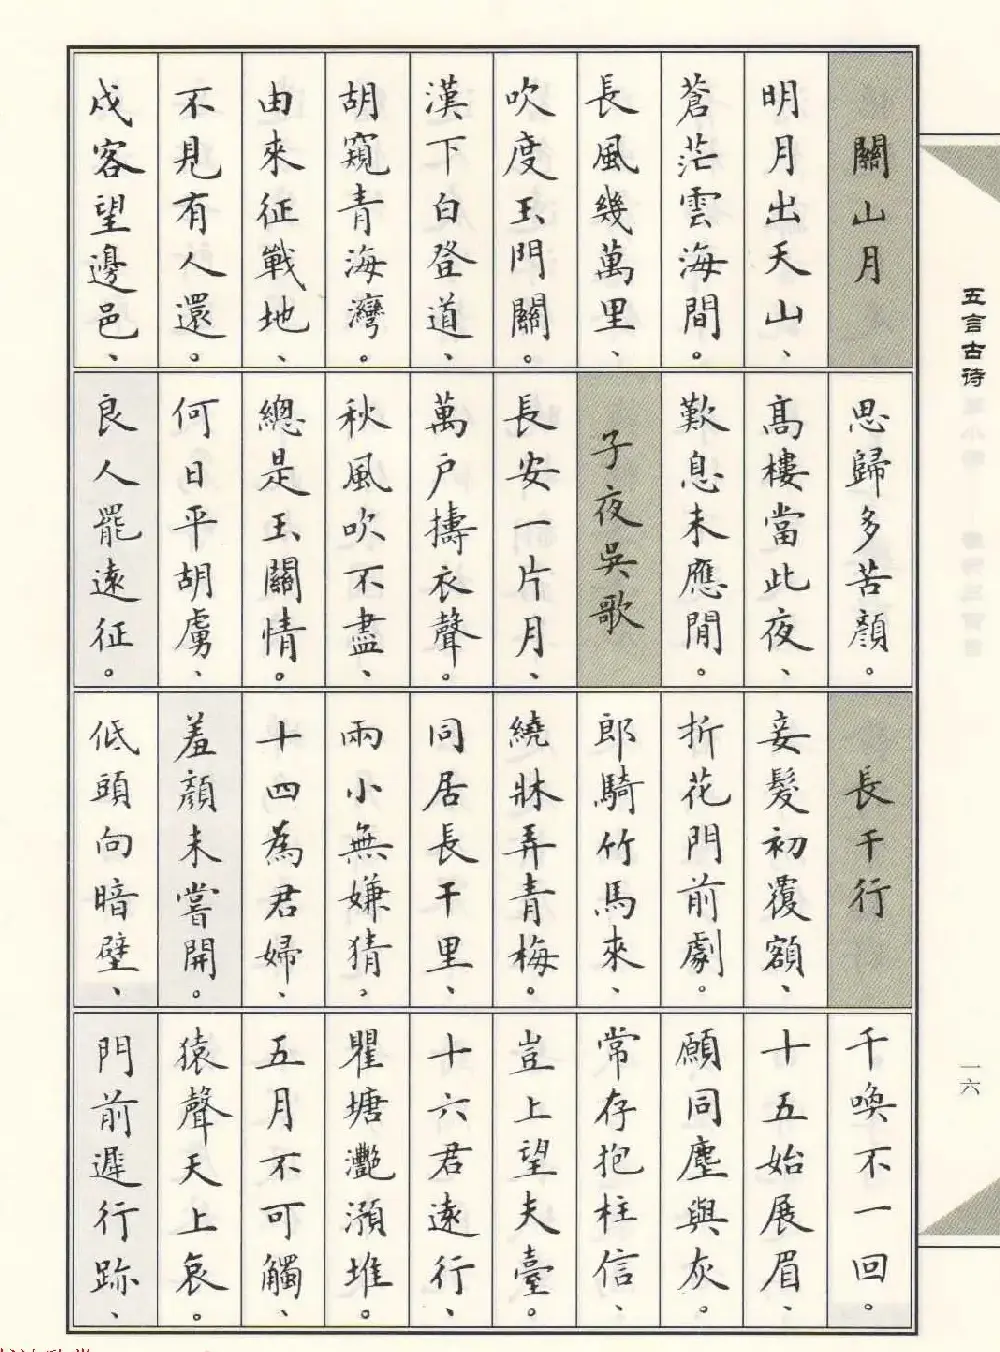 關山月
明月出天山、
蒼茫雲海間。
長風幾萬里、
吹度玉門關。
漢下白登道、
胡窺青海灣。
由來征戰地、
不見有人還。
戍客望邊邑、
思歸多苦顏。
高樓當此夜、
歎息未應閒。
子夜吳歌
長安一片月、
萬户擣衣聲。
秋風吹不盡、
總是玉關情。
何日平胡虜、
良人罷遠征。
長干行
妾髮初覆額、
折花門前劇。
郎騎竹馬來、
繞牀弄青梅。
同居長干里、
兩小無嫌猜、
十四為君婦、
羞顏未嘗開。
低頭向暗壁、
千喚不一回。
十五始展眉、
願同塵與灰。
常存抱柱信、
豈上望夫臺。
十六君遠行、
瞿塘灩澦堆。
五月不可觸、
猿聲天上哀。
門前遲行跡、
五言古诗
一六